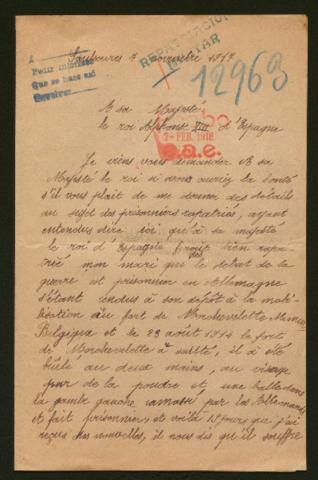 A
Pedir informes
Que se hace así
Escribir
REPATRIACION
MILITAR
12963
7 - FEB. 1918
c.a.e.
7 novembre 1917
A sa Majesté
le roi Alphonse XIII d'Espagne
Je viens vous demander A sa
Majesté le roi si vous auriez la bonté
s'il vous plait de me donner des détails
au sujet des prisonniers rapatriés, ayant
entendus dire ici qu'à sa majesté
le roi d'Espagne bien rapa
trié mon mari qui dès le début de la
guerre est prisonnier en Allemagne
s'étant rendus à son dépôt à la mobi
lisation au fort de Marchovelette Namur
Belgique et le 23 août 1914 le fort
de Marchovelette à sauté, il à été
brûlé au deux mains, au visage
par de la poudre et une balle dans
la jambe gauche ramassé par les Allemands
et fait prisonnier, et voilà 15 jours que j'ai
reçus des nouvelles, il nous dis qu'il souffre